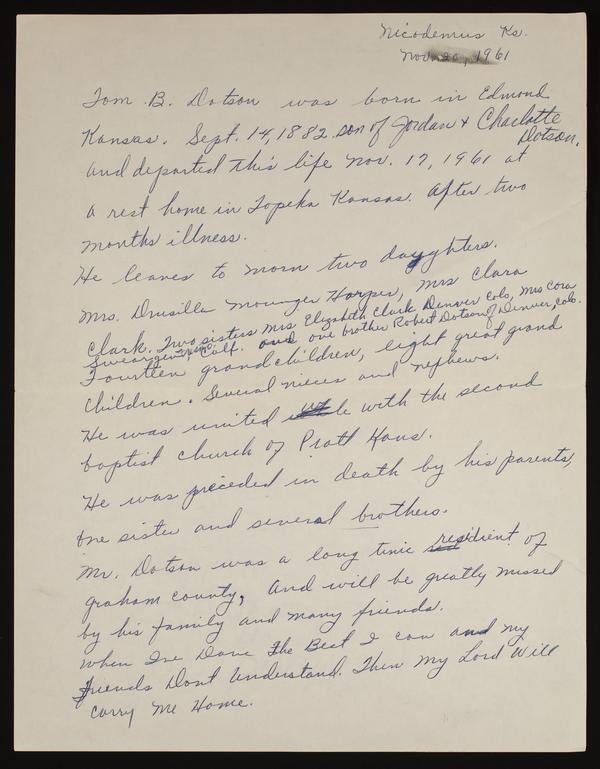 Nicodemus Ks.
Nov. 20, 1961
Tom B. Dotson was born in Edmond
Kansas. Sept. 14, 1882. son of Jordan & Charlotte
Dotson.
and departed this life Nov. 17, 1961 at
a rest home in Topeka Kansas. After two
months illness.
He leaves to morn two daughters.
Mrs. Drusilla Harper, Mrs Clara
Clark. Two sisters Mrs Elizabeth Clark Denver Colo, Mrs Cora
Calf. and one brother Robert Dotson of Denver, Colo.
Fourteen grandchildren, eight great grand
Children. Several nieces and nephews.
He was united with the second
baptist church of Pratt Kans.
He was preceded in death by his parents,
one sister and several brothers.
Mr. Dotson was a long time residient of
graham county, And will be greatly missed
by his family and many friends.
When Ive Done The Best I can and my
friends Dont Understand. Then My Lord Will
Carry Me Home.